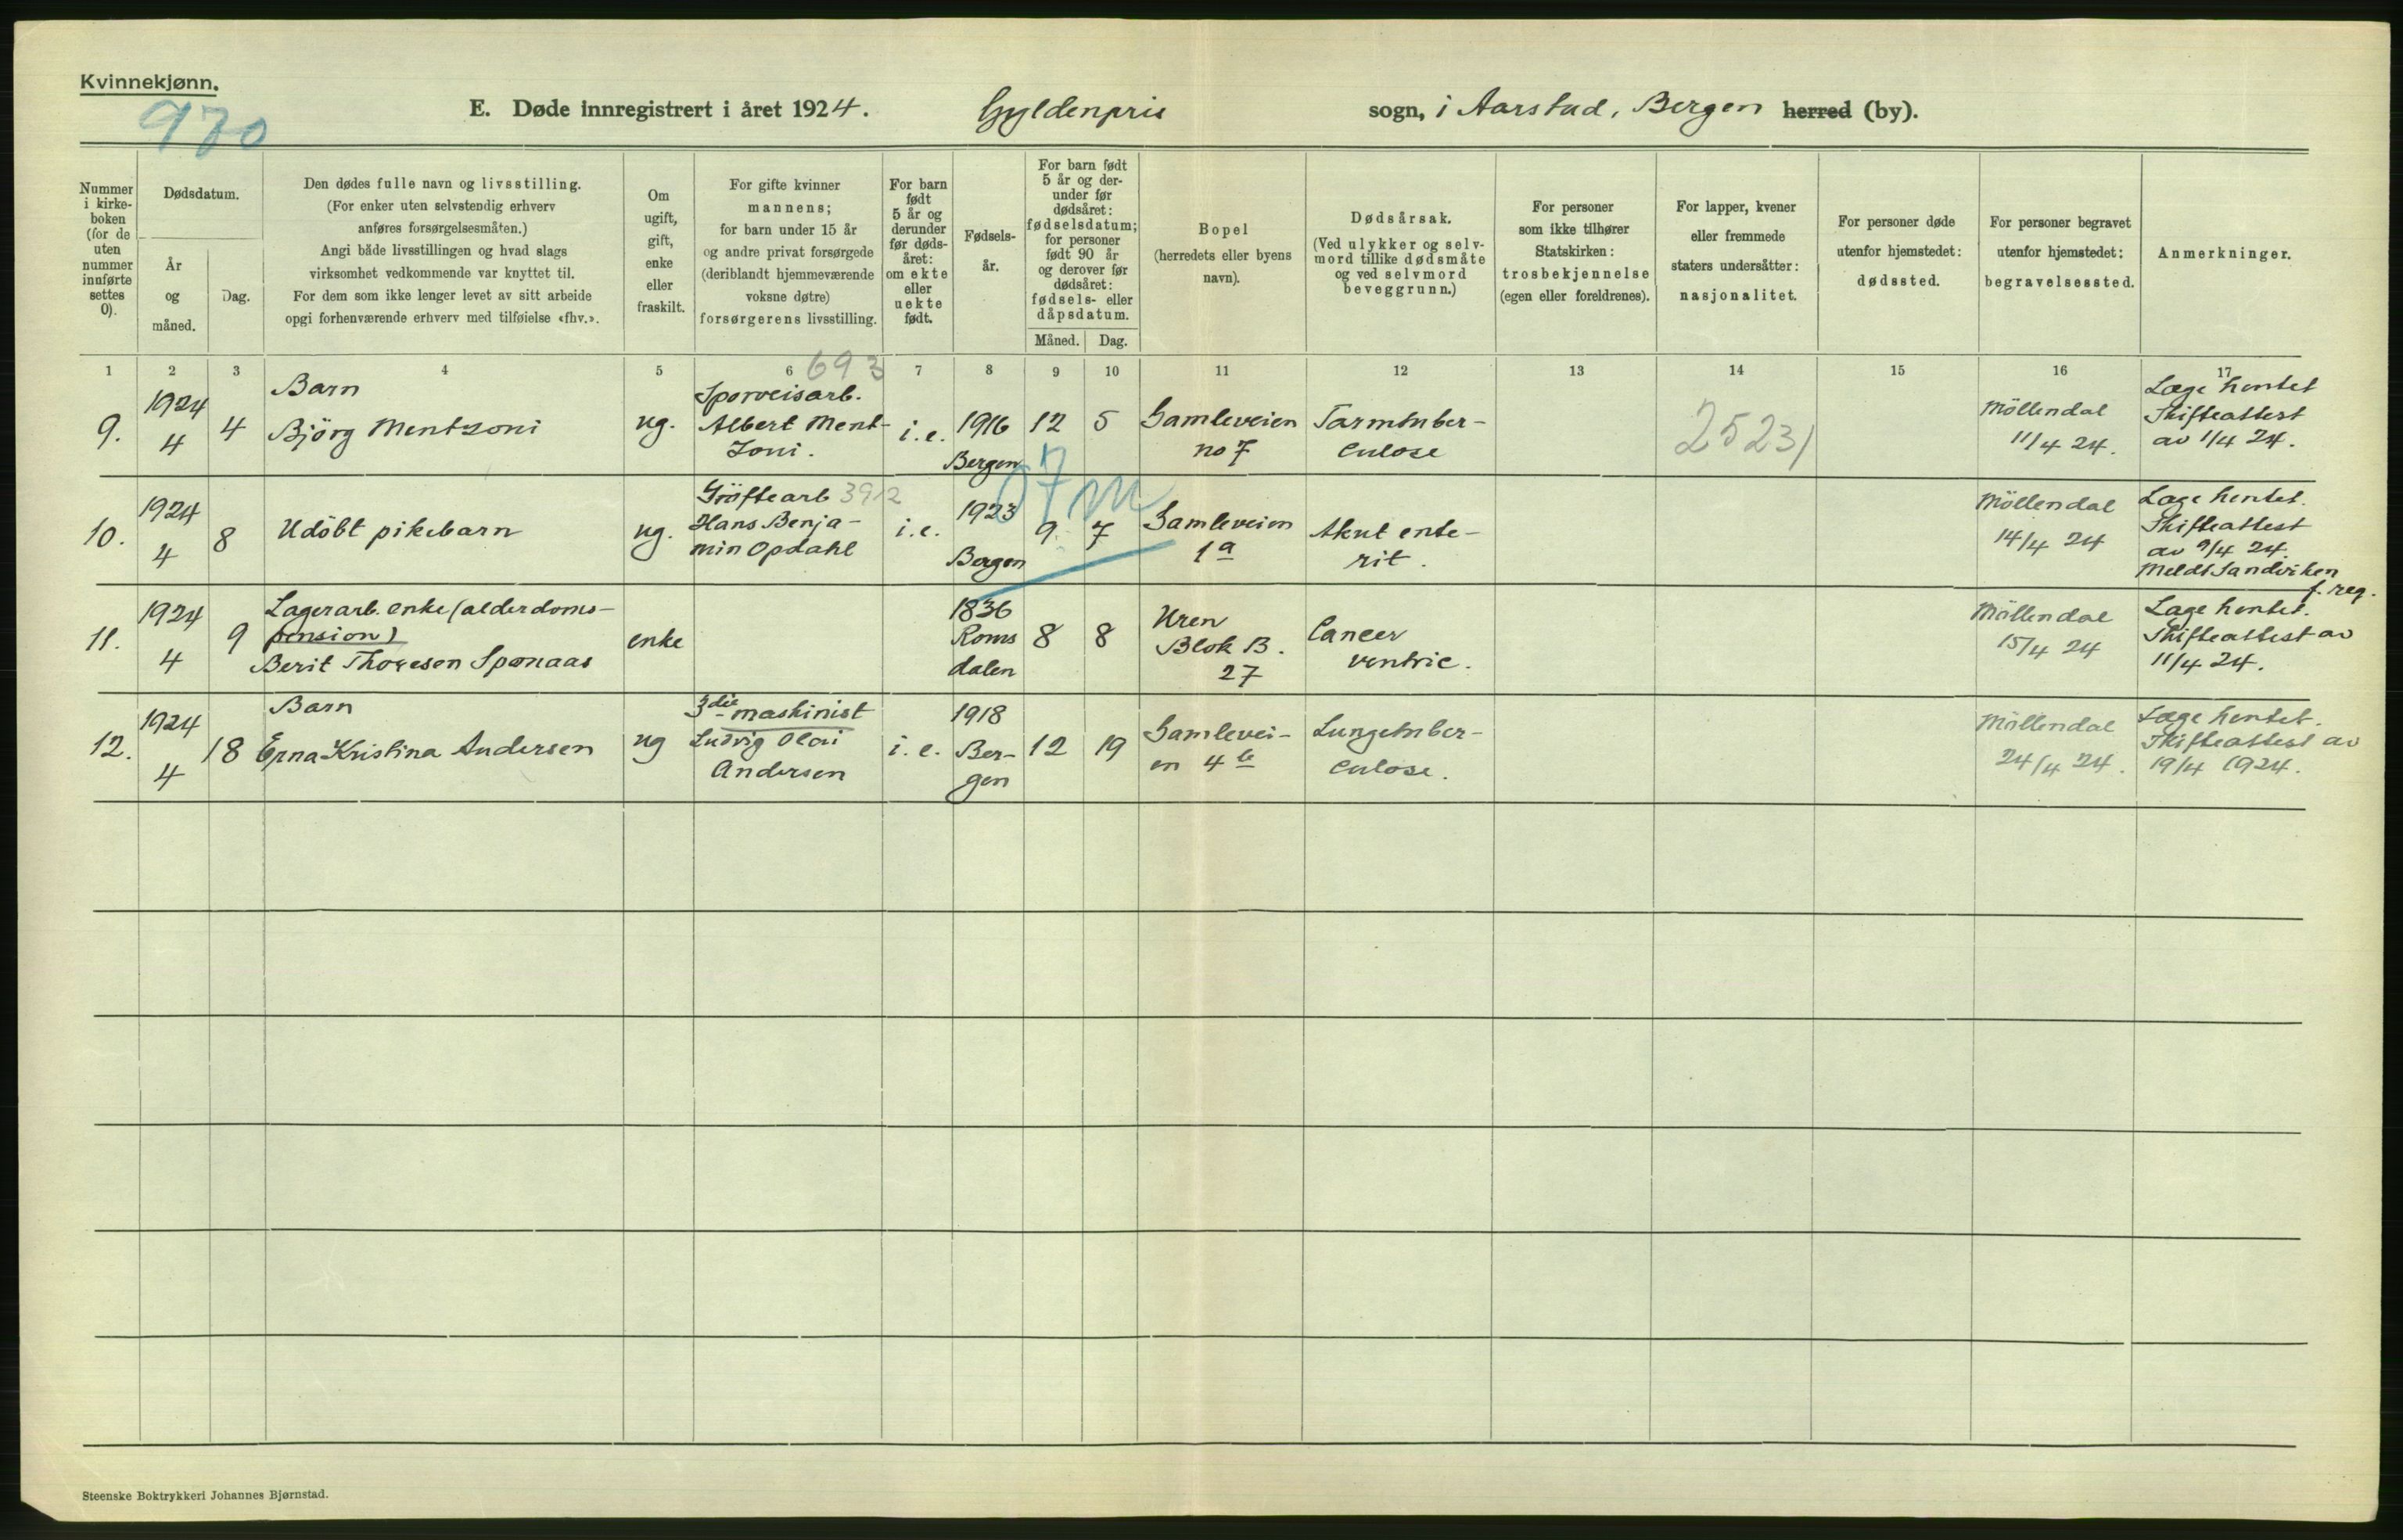 Kvinnekjønn.
970
E. Døde innregistrert i året 1924. Gyldenpris sogn, i Aarstad, Bergen herred (by).
Nummer
i kirke-
boken
(for de
uten
nummer
innførte
settes
0).
Dødsdatum.
År
og
måned.
Dag.
Den dødes fulle navn og livsstilling.
(For enker uten selvstendig erhverv
anføres forsørgelsesmåten.)
Angi både livsstillingen og hvad slags
virksomhet vedkommende var knyttet til.
For dem som ikke lenger levet av sitt arbeide
opgi forhenværende erhverv med tilføielse «fhv.».
Om
ugift,
gift,
enke
eller
fraskilt.
For gifte kvinner
mannens;
for barn under 15 år
og andre privat forsørgede
(deriblandt hjemmeværende
voksne døtre)
forsørgerens livsstilling.
For barn
født
5 år og
derunder
før døds-
året:
om ekte
eller
uekte
født.
Fødsels-
år.
For barn født
5 år og der-
under før
dødsåret:
fødselsdatum;
for personer
født 90 år
og derover før
dødsåret:
fødsels- eller
dåpsdatum.
Måned. Dag.
Bopel
(herredets eller byens
navn).
Dødsårsak.
(Ved ulykker og selv-
mord tillike dødsmåte
og ved selvmord
beveggrunn.)
For personer
som ikke tilhører
Statskirken:
trosbekjennelse
(egen eller foreldrenes).
For lapper, kvener
eller fremmede
staters undersåtter:
nasjonalitet.
For personer døde
utenfor hjemstedet:
dødssted.
For personer begravet
utenfor hjemstedet:
begravelsessted.
Anmerkninger.
1 2 3 4 5 6 7 8 9 10 11 12 13 14 15 16 17
693
9.
1924
4
4
Barn
Björg Mentzoni
ug.
Sporveisarb.
Albert Ment-
zoni.
i.e.
1916
Bergen
12
5
Gamleveien
no 7
Tarmtuber-
culose
25231
Möllendal
11/4 24.
Læge hentet
Skifteattest
av 1/4 24.
10.
1924
4
8
Udöbt pikebarn
ug.
Gröftearb 3912
Hans Benja-
min Opdahl
i.e.
1923
Bergen
9.
7
Gamleveien
1a
Akut ente-
rit.
Möllendal
14/4 24
Læge hentet.
Skifteattest
av 9/4 24.
Meldt Sandviken
f. reg.
11.
1924
4
9
Lagerarb. enke (alderdoms-
pension)
Berit Thoresen Sponaas
enke
1836
Roms
dalen
8
8
Uren
Blok B.
27
Cancer
ventric.
Möllendal
15/4 24
Læge hentet.
Skifteattest av
11/4 24.
12.
1924
4
18
Barn
Erna Kristina Andersen
ug
3die maskinist
Ludvig Olai
Andersen
i.e.
1918
Ber-
gen
12
19
Gamlevei-
en 4b
Lungetuber-
culose.
Möllendal
24/4 24.
Læge hentet.
Skifteattest av
19/4 1924.
Steenske Boktrykkeri Johannes Bjørnstad.